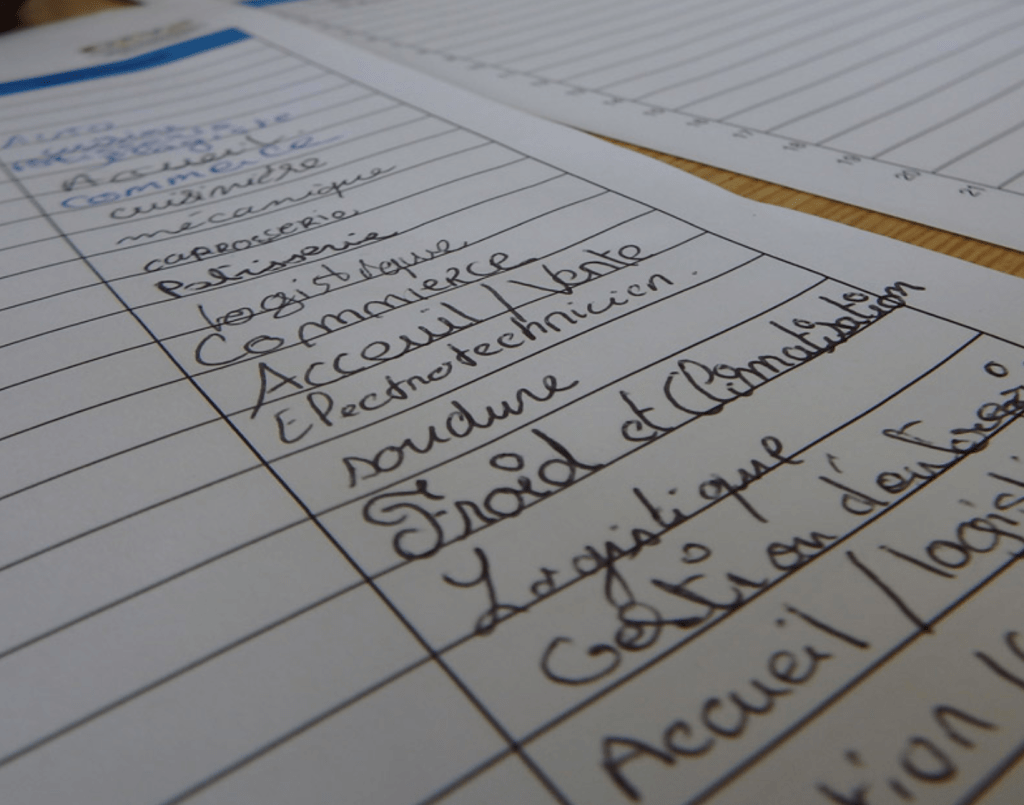 Auto
Accueil
Commerce
cuisinière
mécanique
CARROSSERIE
Patisserie
Logistique
COMMERCE
Acceuil / Vente
Electrotechnicien.
soudure
Froid et Climatisation
Logistique
Gestion
Accueil / logisti
tion
15
16
17
18
19
20
21